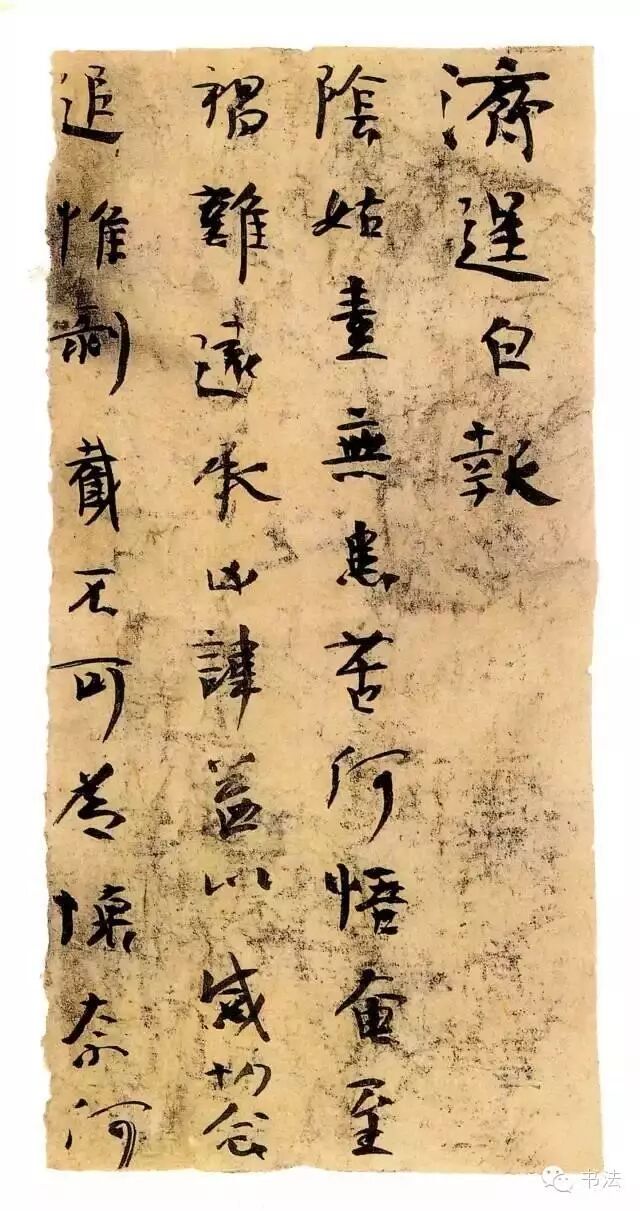 濟逞白報
陰姑素無患苦何悟奄至
禍難遠承凶諱益以感切念
追惟剝截不可為懷奈何
书法